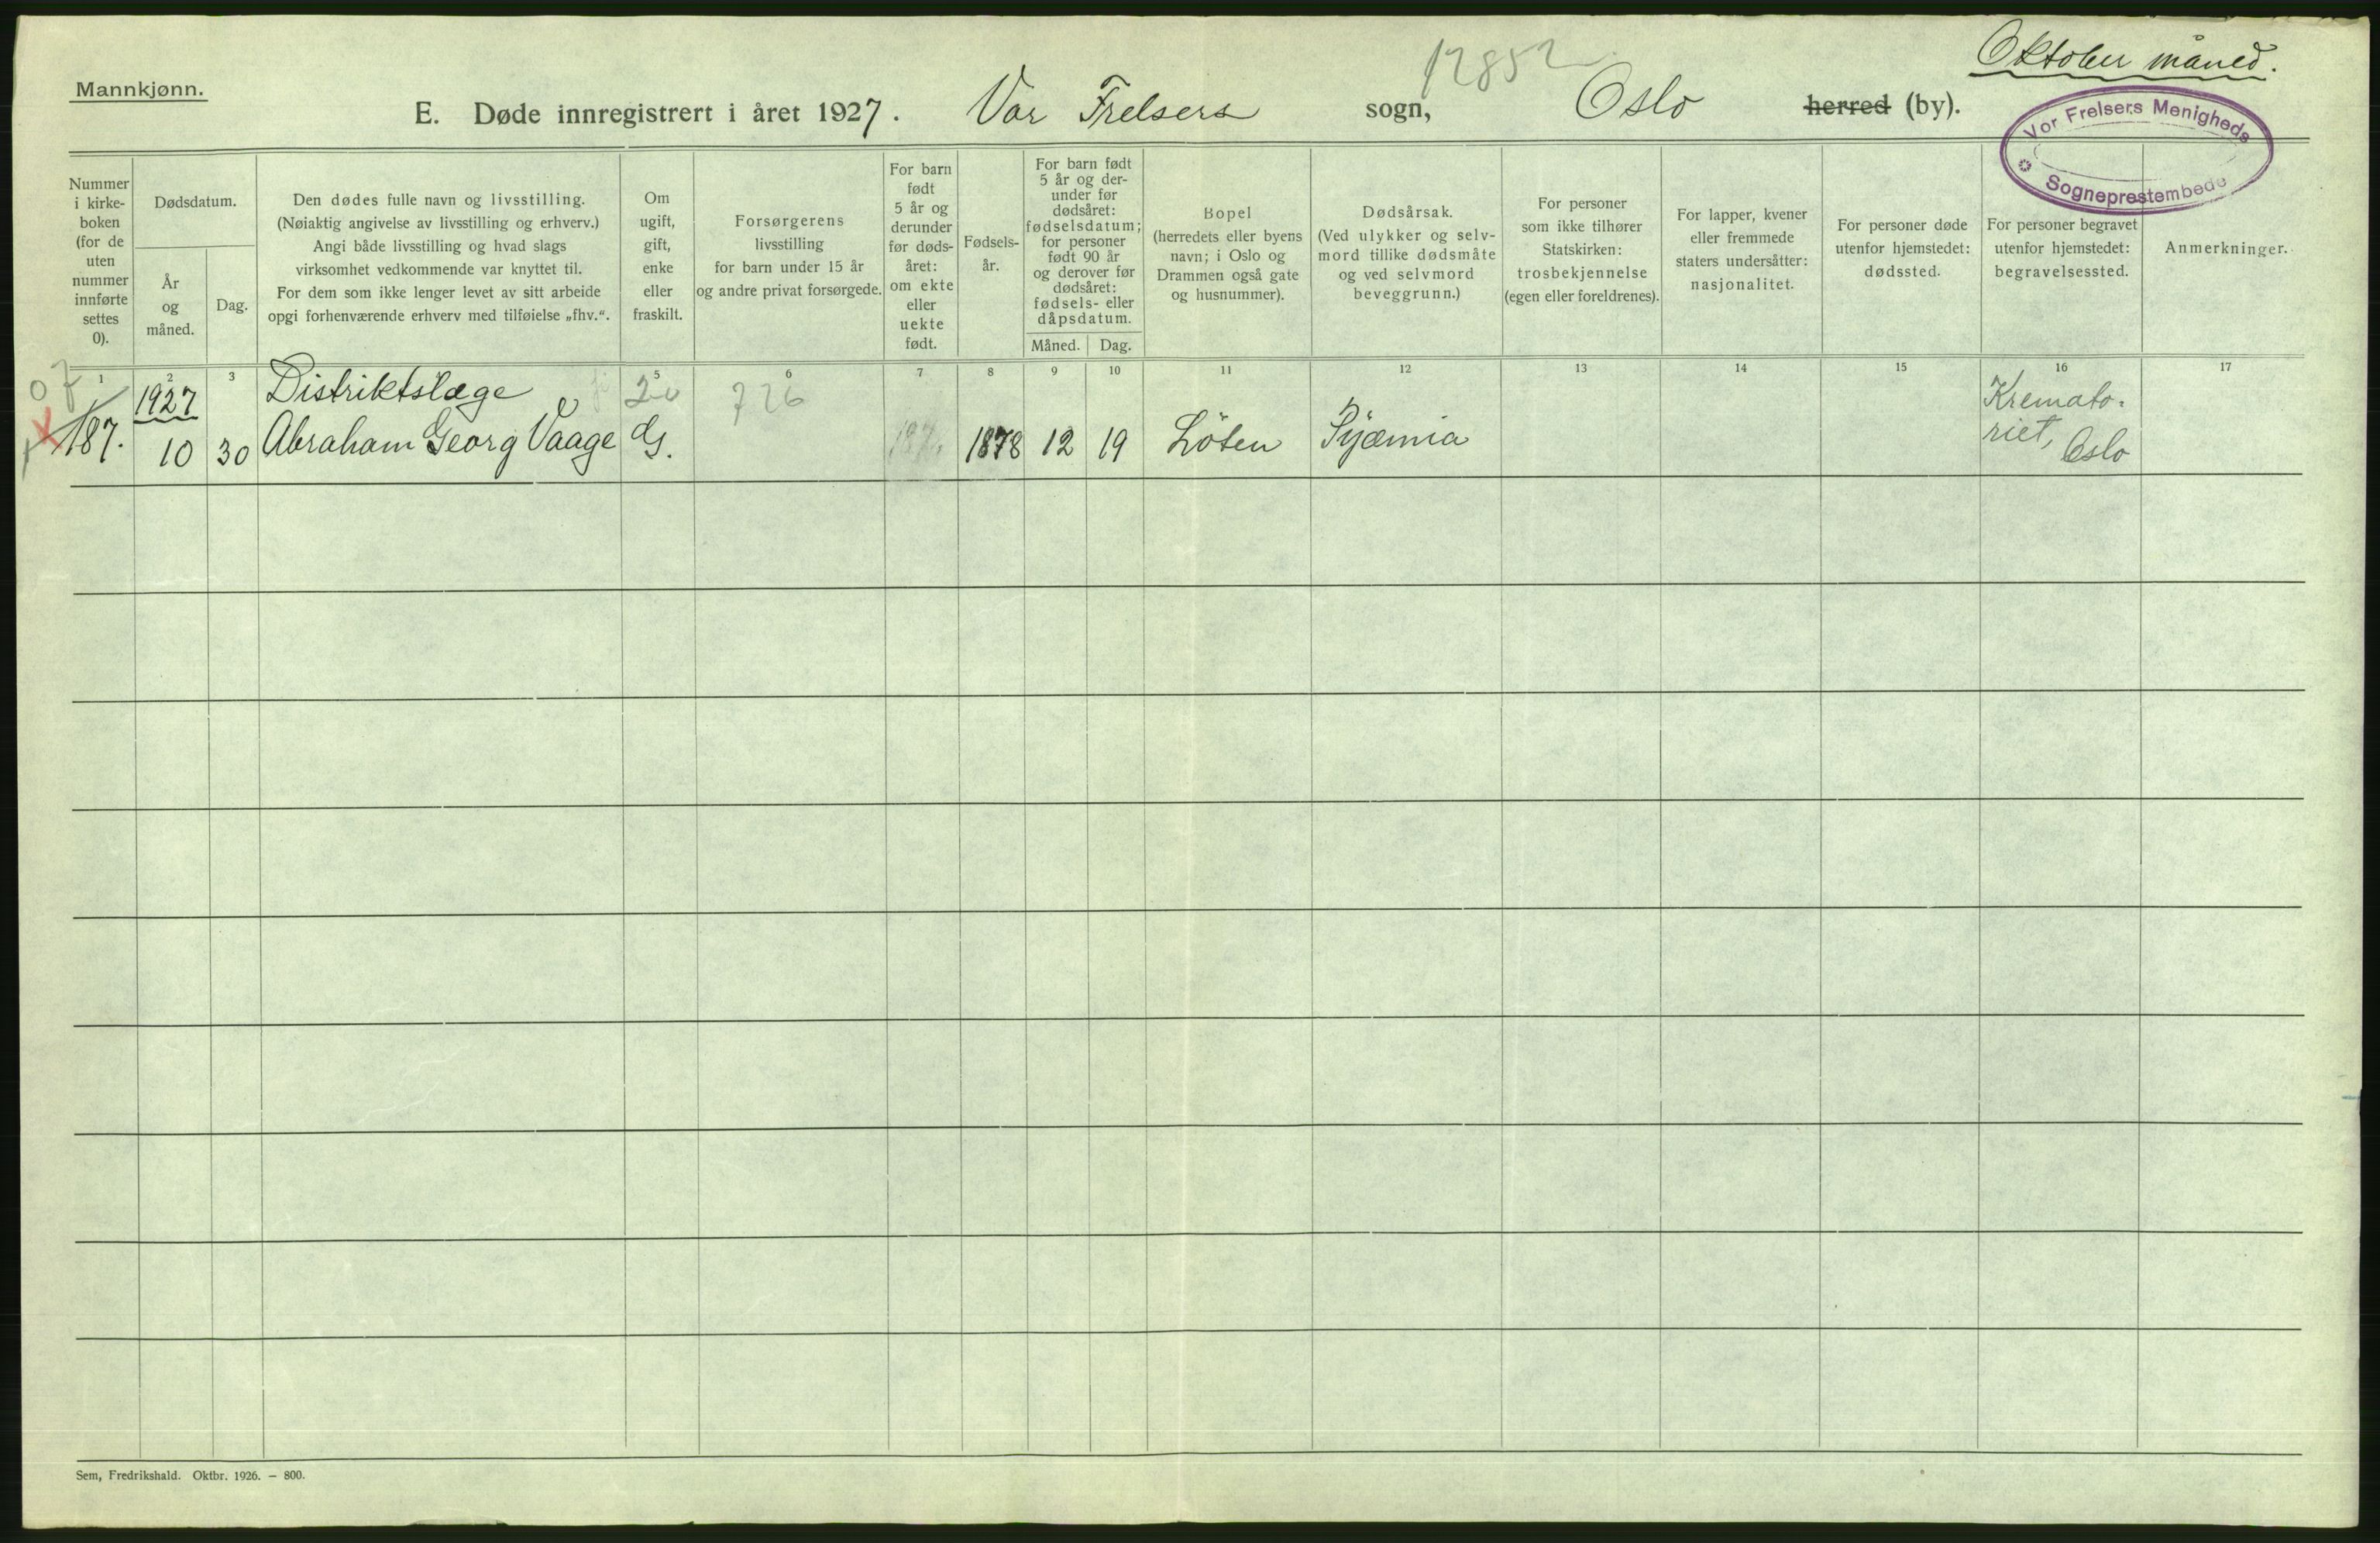 Oktober måned.
12852
Mannkjønn.
E. Døde innregistrert i året 1927. Vor Frelsers sogn, Oslo herred (by).
Vor Frelsers Menigheds
Sogneprestembede
Nummer
i kirke-
boken
(for de
uten
nummer
innførte
settes
0).
Dødsdatum.
År
og
måned.
Dag.
Den dødes fulle navn og livsstilling.
(Nøiaktig angivelse av livsstilling og erhverv.)
Angi både livsstilling og hvad slags
virksomhet vedkommende var knyttet til.
For dem som ikke lenger levet av sitt arbeide
opgi forhenværende erhverv med tilføielse „fhv.“.
Om
ugift,
gift,
enke
eller
fraskilt.
Forsørgerens
livsstilling
for barn under 15 år
og andre privat forsørgede.
For barn
født
5 år og
derunder
før døds-
året:
om ekte
eller
uekte
født.
Fødsels-
år.
For barn født
5 år og der-
under før
dødsåret:
fødselsdatum;
for personer
født 90 år
og derover før
dødsåret:
fødsels- eller
dåpsdatum.
Måned. Dag.
Bopel
(herredets eller byens
navn; i Oslo og
Drammen også gate
og husnummer).
Dødsårsak.
(Ved ulykker og selv-
mord tillike dødsmåte
og ved selvmord
beveggrunn.)
For personer
som ikke tilhører
Statskirken:
trosbekjennelse
(egen eller foreldrenes).
For lapper, kvener
eller fremmede
staters undersåtter:
nasjonalitet.
For personer døde
utenfor hjemstedet:
dødssted.
For personer begravet
utenfor hjemstedet:
begravelsessted.
Anmerkninger.
1 2 3 5 6 7 8 9 10 11 12 13 14 15 16 17
07
1927 Distriktslæge 20 726 Kremato-
187. 10 30 Abraham Georg Vaage G. 1878 12 19 Löten Pyæmia riet,
Oslo
Sem, Fredrikshald. Oktbr. 1926. — 800.